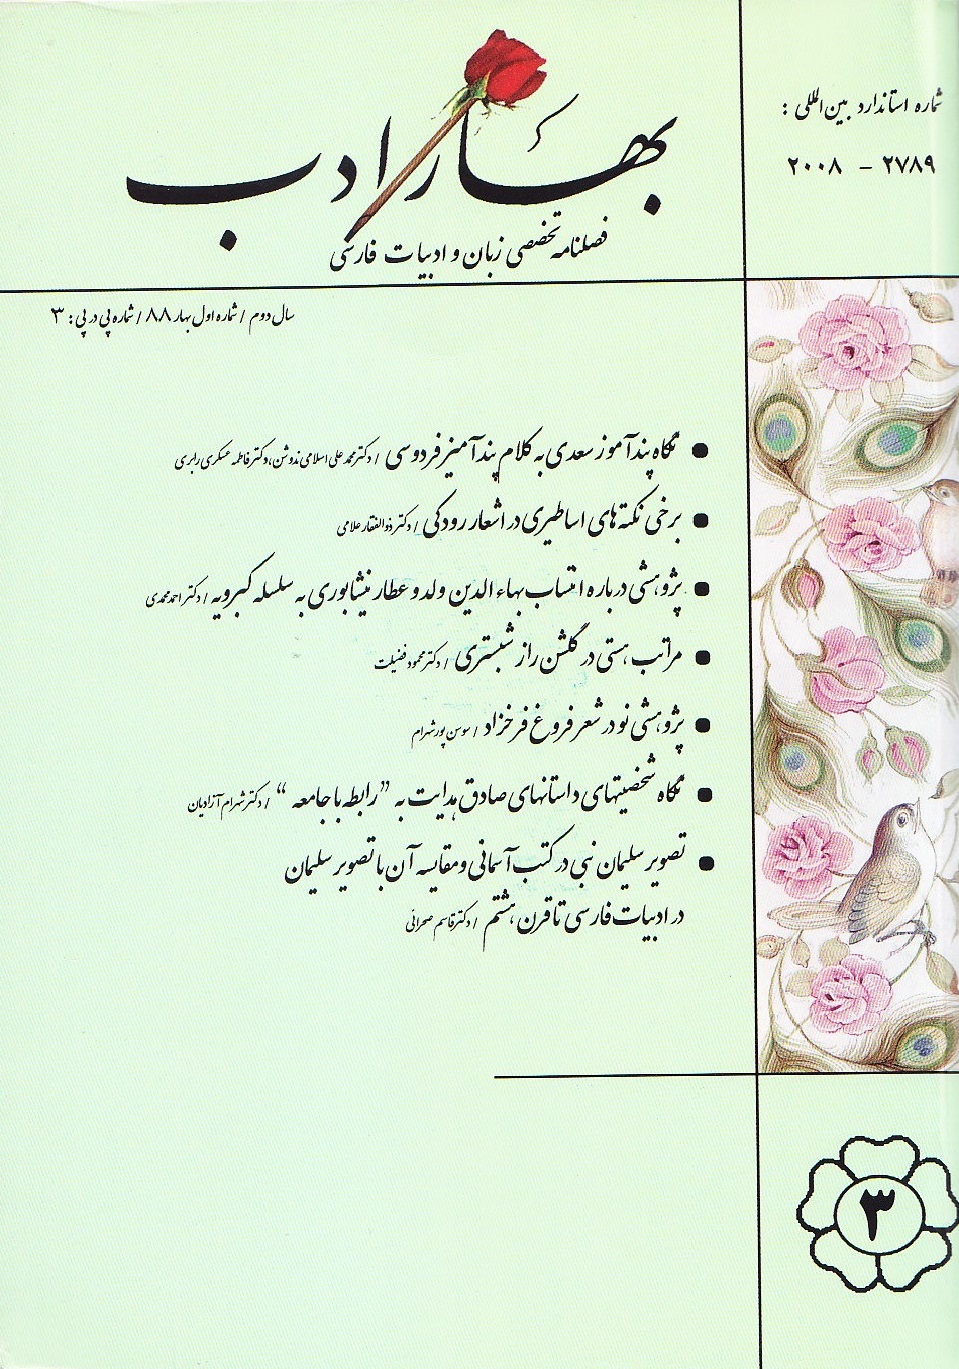 شماره استاندارد بین‌المللی :
۲۰۰۸ – ۲۷۸۹
بهار ادب
فصلنامه تخصصی زبان و ادبیات فارسی
سال دوم / شماره اول بهار ۸۸ / شماره پی در پی: ۳
● نگاه پندآموز سعدی به کلام پندآمیز فردوسی / دکتر محمد علی اسلامی ندوشن، دکتر فاطمه عسکری رابری
● برخی نکته های اساطیری در اشعار رودکی / دکتر ذوالفقار علامی
● پژوهشی درباره انتساب بهاء الدین ولد و عطار نیشابوری به سلسله کبرویه / دکتر احمد محمدی
● مراتب هستی در گلشن راز شبستری / دکتر محمود فضیلت
● پژوهشی نو در شعر فروغ فرخزاد / سوسن پورشهرام
● نگاه شخصیتهای داستانهای صادق هدایت به ”رابطه با جامعه“ / دکتر شهرام آزادیان
● تصویر سلیمان نبی در کتب آسمانی و مقایسه آن با تصویر سلیمان
در ادبیات فارسی تا قرن هشتم / دکتر قاسم صحرائی
۳